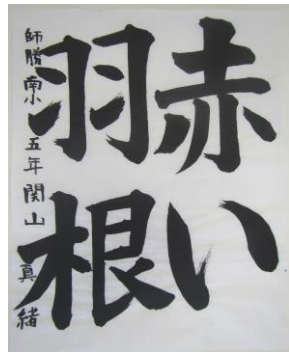 赤い
羽根
師勝南小 五年 関山 真緒